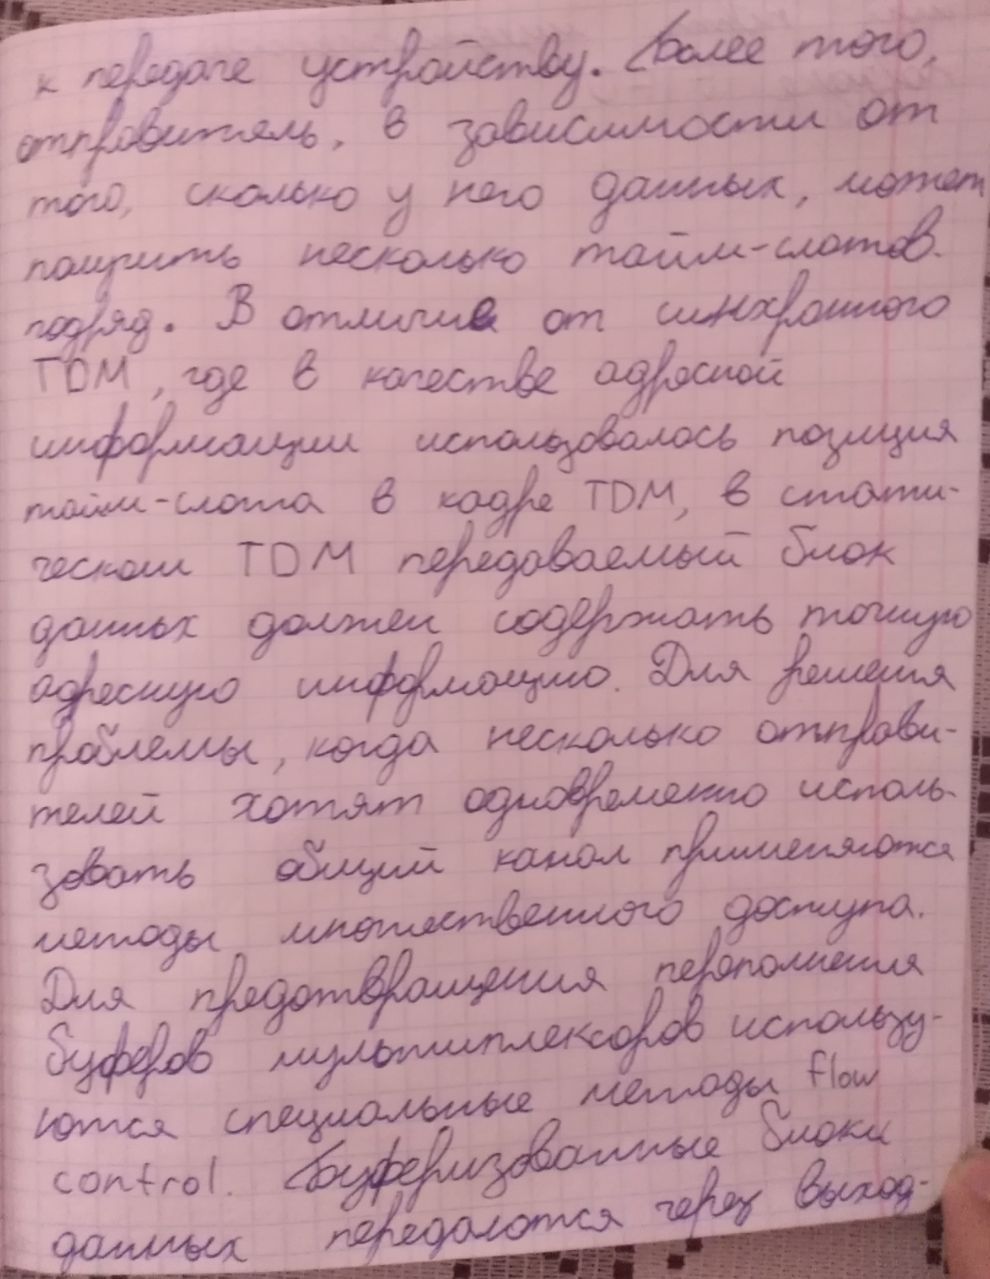 к передаче устройству. Более того,
отправитель, в зависимости от
того, сколько у него данных, может
получить несколько тайм-слотов
подряд. В отличие от синхронного
TDM, где в качестве адресной
информации использовалось позиция
тайм-слота в кадре TDM, в стати-
ческом TDM передаваемый блок
данных должен содержать точную
адресную информацию. Для решения
проблемы, когда несколько отправи-
телей хотят одновременно исполь-
зовать общий канал применяются
методы множественного доступа.
Для предотвращения переполнения
буферов мультиплексоров использу-
ются специальные методы flow
control. Буферизованные блоки
данных передаются через выход-